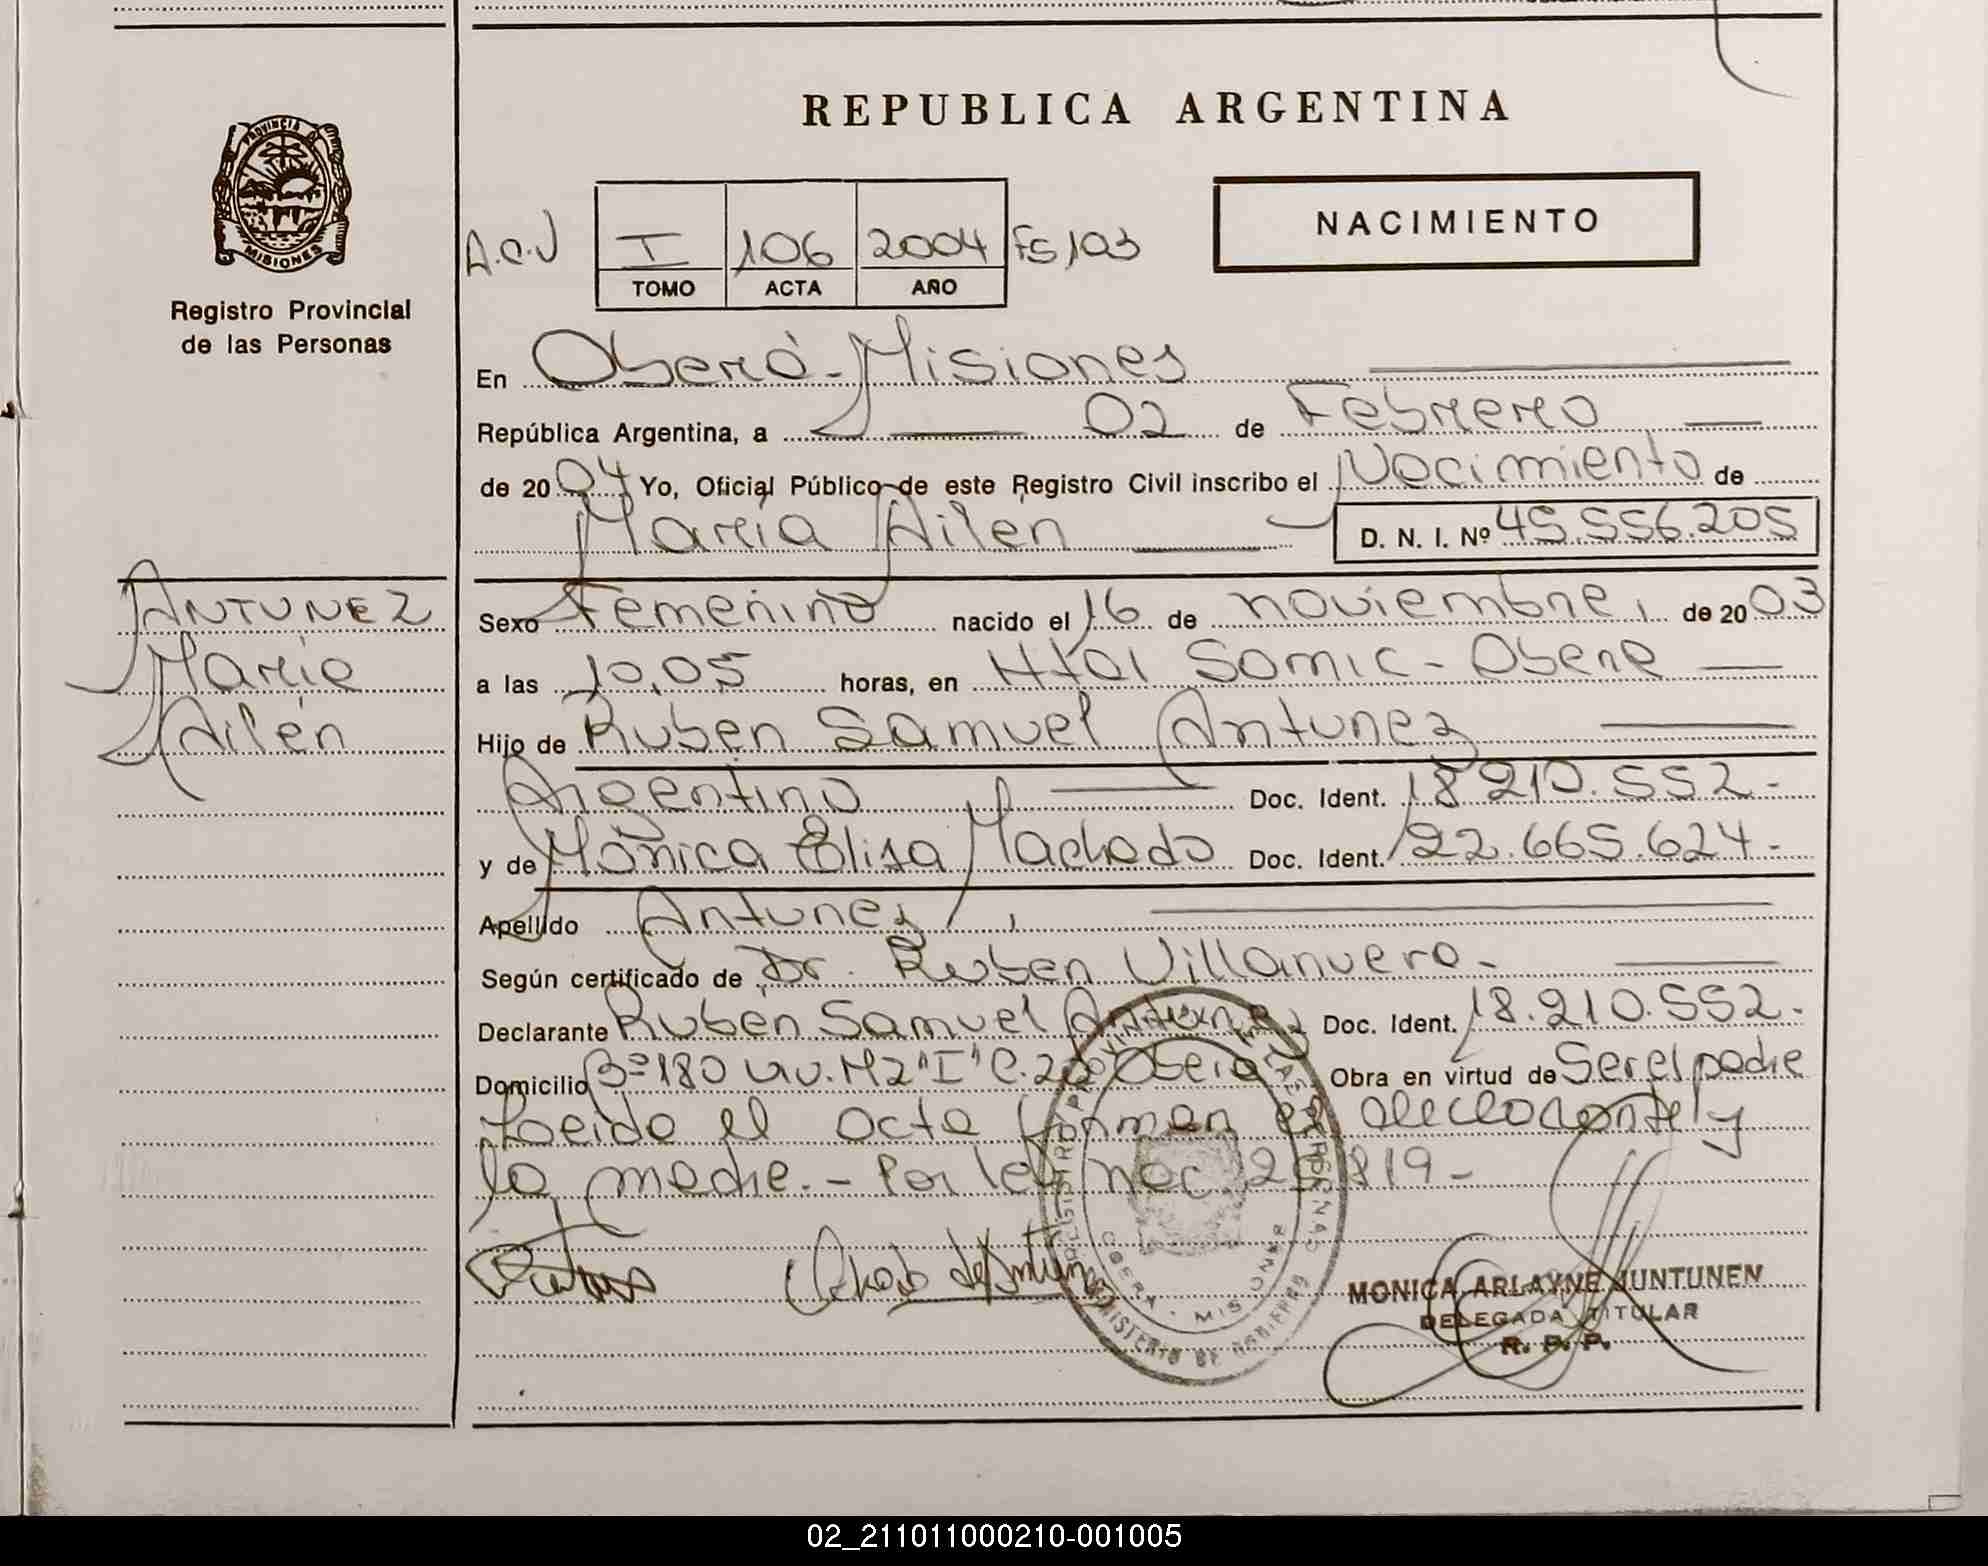 REPUBLICA ARGENTINA
PROVINCIA DE MISIONES
Registro Provincial
de las Personas
NACIMIENTO
A.C.V I 106 2004 Fs 103
TOMO ACTA AÑO
En Oberá - Misiones
República Argentina, a 02 de Febrero
de 2004 Yo, Oficial Público de este Registro Civil inscribo el Nacimiento de
María Ailén D. N. I. Nº 45.556.205
ANTUNEZ
María
Ailén
Sexo Femenino nacido el 16 de noviembre, de 2003
a las 10,05 horas, en Htal Samic - Oberá
Hijo de Ruben Samuel Antunez
Argentino Doc. Ident. 18.210.552.-
y de Mónica Elisa Machado Doc. Ident. 22.665.624.-
Apellido Antunez
Según certificado de Dr. Ruben Villanueva.-
Declarante Rubén Samuel Antunez Doc. Ident. 18.210.552.-
Domicilio Bº 180 viv. Mz "I" C. 20 Oberá Obra en virtud de Ser el padre
Leída el acta firman el declarante y
la madre.- Por ley nac. 25.819-
REGISTRO PROVINCIAL DE LAS PERSONAS
OBERA - MISIONES
MINISTERIO DE GOBIERNO
MONICA ARLAYNE JUNTUNEN
DELEGADA TITULAR
R. P. P.
02_211011000210-001005